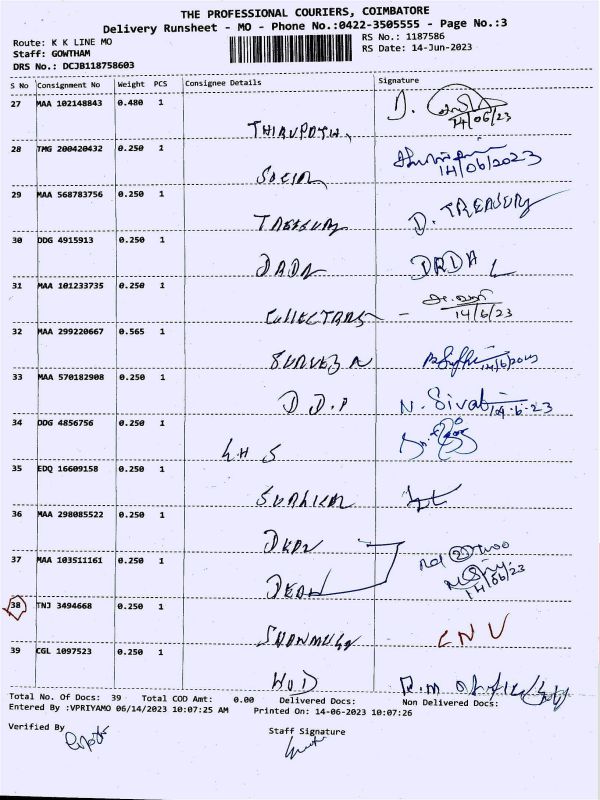 THE PROFESSIONAL COURIERS, COIMBATORE
Delivery Runsheet - MO - Phone No.:0422-3505555 - Page No.:3
Route: K K LINE MO
RS No.: 1187586
Staff: GOWTHAM
RS Date: 14-Jun-2023
DRS No.: DCJB118758603
S No Consignment No Weight PCS Consignee Details Signature
27 MAA 102148843 0.480 1
14/06/23
28 TMG 200420432 0.250 1
14/06/2023
29 MAA 568783756 0.250 1
D. TREASURY
30 DDG 4915913 0.250 1
DRDA
31 MAA 101233735 0.250 1
COLLECTORS
14/6/23
32 MAA 299220667 0.565 1
14/6/2023
33 MAA 570182908 0.250 1
D.D.P
N. Siva
34 DDG 4856756 0.250 1
35 EDQ 16609158 0.250 1
36 MAA 298085522 0.250 1
37 MAA 103511161 0.250 1
DEAN
14/06/23
38 TNJ 3494668 0.250 1
CNV
39 CGL 1097523 0.250 1
Total No. Of Docs: 39 Total COD Amt: 0.00 Delivered Docs: Non Delivered Docs:
Entered By :VPRIYAMO 06/14/2023 10:07:25 AM Printed On: 14-06-2023 10:07:26
Verified By
Staff Signature